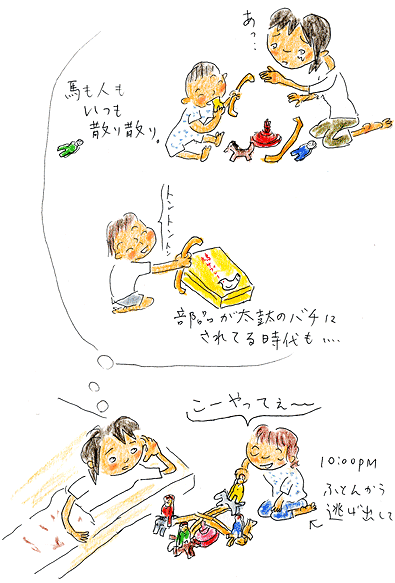 あっ…
馬も人も
いつも
散り散り。
トントントン
部品が太鼓のバチに
されてる時代も….
こーやってぇ〜
10:00PM
ふとんから
逃げ出して